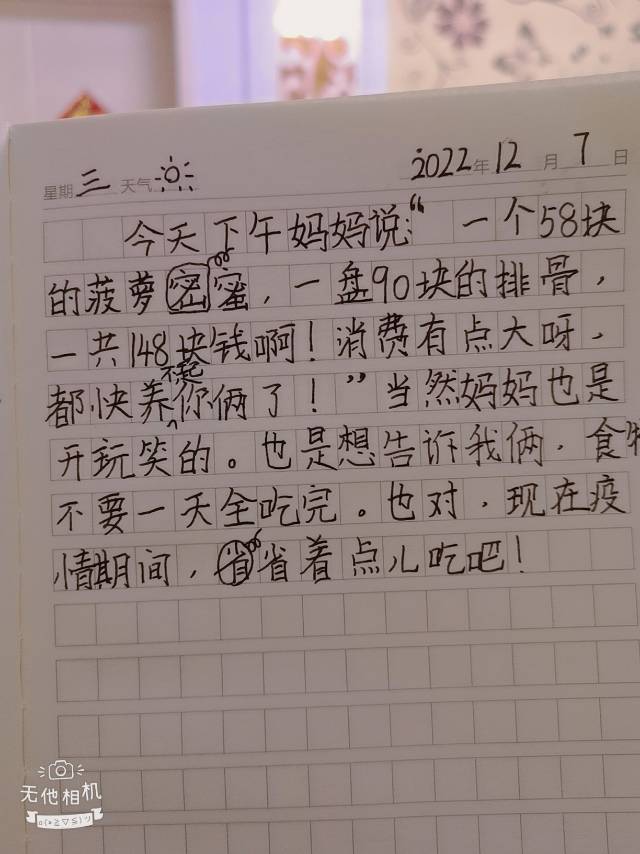 星期 三 天气 2022年 12月 7日
今天下午妈妈说:“一个58块
的菠萝蜜,一盘90块的排骨,
一共148块钱啊!消费有点大呀,
都快养不起你俩了!”当然妈妈也是
开玩笑的。也是想告诉我俩,食物
不要一天全吃完。也对,现在疫
情期间,省着点儿吃吧!
无他相机